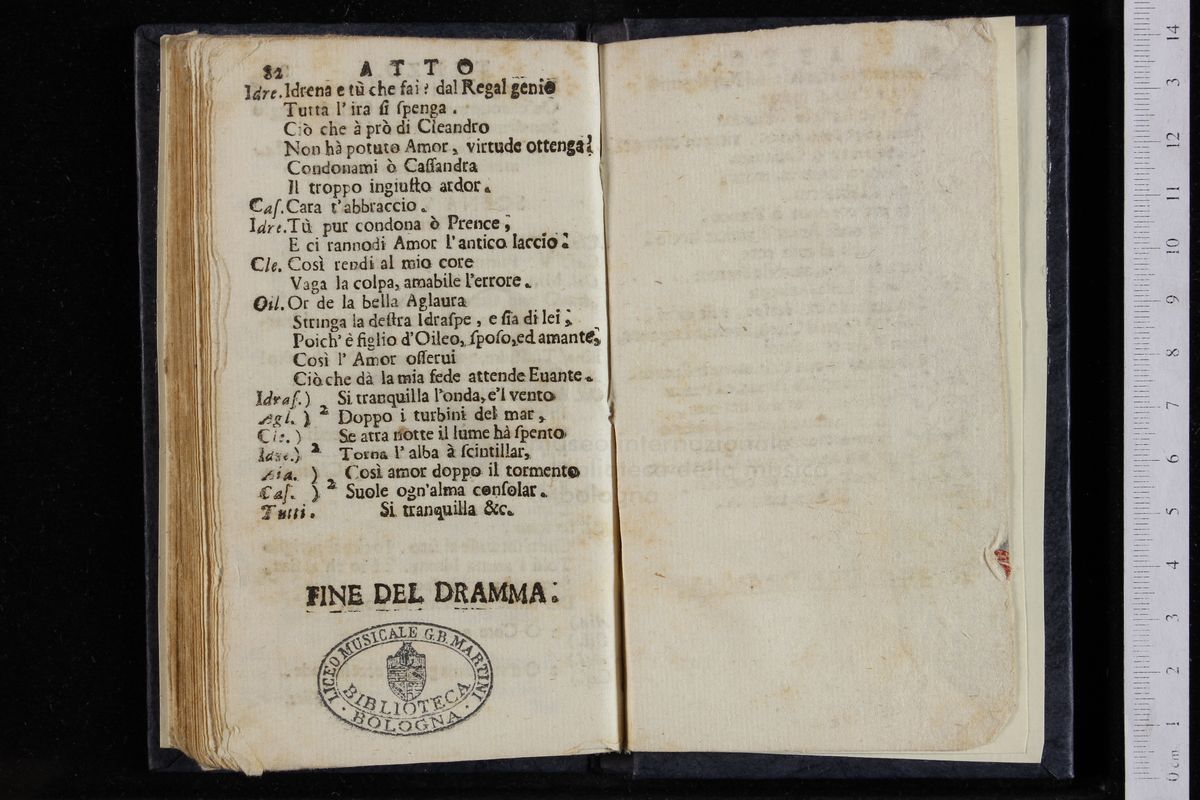 82 ATTO
Idre. Idrena e tù che fai? dal Regal genio
Tutta l'ira si spenga.
Ciò che à prò di Cleandro
Non hà potuto Amor, virtude ottenga?
Condonami ò Cassandra
Il troppo ingiusto ardor.
Cas. Cara t'abbraccio.
Idre. Tù pur condona ò Prence;
E ci rannodi Amor l'antico laccio:
Cle. Così rendi al mio core
Vaga la colpa, amabile l'errore.
Oil. Or de la bella Aglaura
Stringa la destra Idraspe, e sia di lei;
Poich' è figlio d'Oileo, sposo, ed amante,
Così l' Amor osservi
Ciò che dà la mia fede attende Euante.
Idras.) Si tranquilla l'onda, e'l vento
Agl. ) 2 Doppo i turbini del mar,
Cle. ) Se atra notte il lume hà spento
Idre.) 2 Torna l'alba à scintillar,
Aia. ) Così amor doppo il tormento
Cas. ) 2 Suole ogn'alma consolar.
Tutti. Si tranquilla &c.
FINE DEL DRAMMA:
LICEO MUSICALE G.B. MARTINI
BIBLIOTECA
· BOLOGNA ·
museo internazionale
biblioteca della musica
bologna
14
3
12
11
10
9
8
7
6
5
4
3
2
1
0 cm